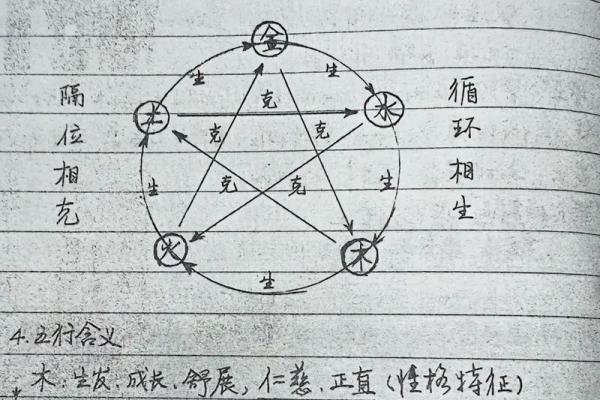 金
生
生
隔位相克
土
克
水
循环相生
克
克
生
克
克
生
火
木
生
4.五行含义
木:生发、成长、舒展,仁慈、正直(性格特征)